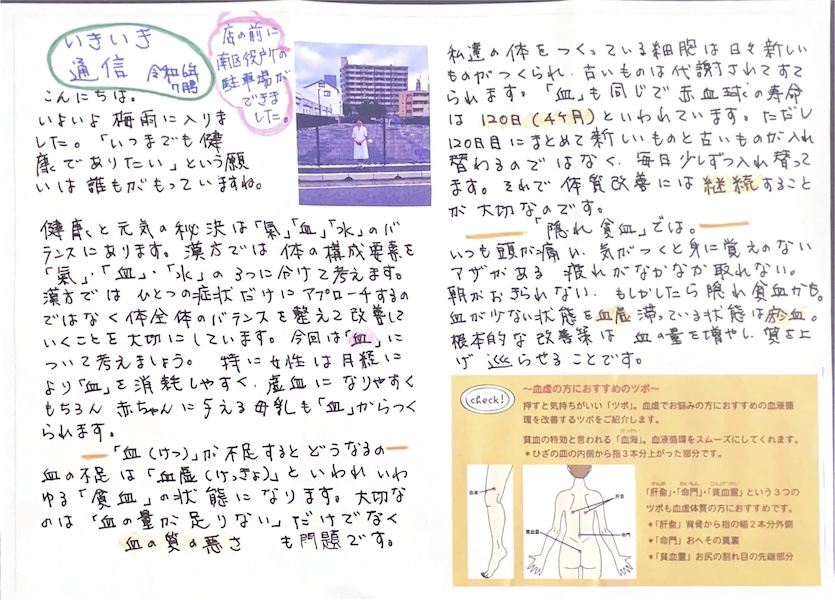 いきいき
通信 令和6年
7月
店の前に
南区役所の
駐車場が
できま
した。
こんにちは。
いよいよ 梅雨に入りま
した。「いつまでも健
康でありたい」という願
いは 誰もがもっていますね。
健康と元気の秘決は「氣」「血」「水」のバ
ランスにあります。漢方では 体の構成要素を
「氣」・「血」・「水」の3つに分けて考えます。
漢方では ひとつの症状だけにアプローチするの
ではなく体全体のバランスを整えて改善して
いくことを大切にしています。今回は「血」に
ついて考えましょう。 特に女性は月経に
より「血」を消耗しやすく、虚血になりやすく
もちろん 赤ちゃんに与える母乳も「血」からつく
られます。
「血(けつ)」が不足するとどうなるの
血の不足は「血虚(けっきょ)」といわれ いわ
ゆる「貧血」の状態になります。大切な
のは「血の量が足りない」だけでなく
血の質の悪さ も問題です。
私達の体をつくっている細胞は日々新しい
ものがつくられ、古いものは代謝されてすて
られます。「血」も同じで赤血球の寿命
は 120日(4ヶ月)といわれています。ただし
120日目にまとめて新しいものと古いものが入れ
替わるのではなく、毎日少しずつ入れ替って
ます。それで 体質改善には継続すること
が大切なのです。
「隠れ貧血」では。
いつも頭が痛い、気がつくと身に覚えのない
アザがある 疲れがなかなか取れない。
朝がおきられない、もしかしたら隠れ貧血かも。
血が少ない状態を血虚 滞っている状態は瘀血。
根本的な改善策は 血の量を増やし、質を上
げ 巡らせることです。
check!
～血虚の方におすすめのツボ～
押すと気持ちがいい「ツボ」。血虚でお悩みの方におすすめの血液循
環を改善するツボをご紹介します。
けっかい
貧血の特効と言われる「血海」。血液循環をスムーズにしてくれます。
＊ひざの皿の内側から指3本分上がった部分です。
血海
肝兪
命門
貧血霊
かんゆ めいもん ひんけつれい
「肝兪」・「命門」・「貧血霊」という３つの
ツボも血虚体質の方におすすめです。
＊「肝兪」背骨から指の幅２本分外側
＊「命門」おへその真裏
＊「貧血霊」お尻の割れ目の先端部分